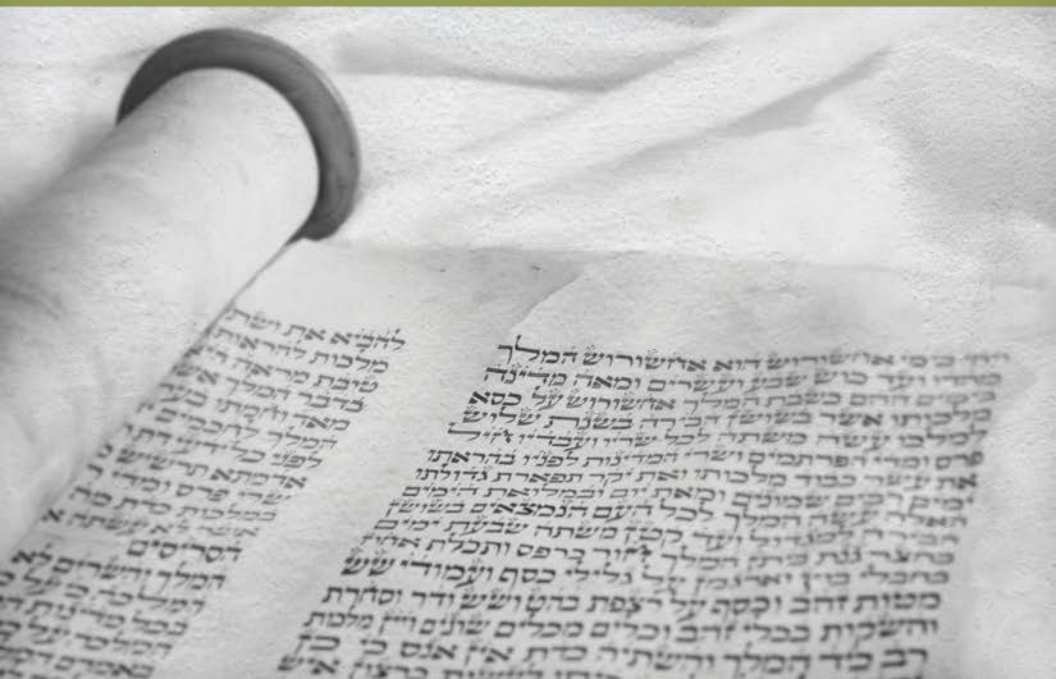 ויהי בימי אחשורוש הוא אחשורוש המלך
מהדו ועד כוש שבע ועשרים ומאה מדינה
בימים ההם כשבת המלך אחשורוש על כסא
מלכותו אשר בשושן הבירה בשנת שלוש
למלכו עשה משתה לכל שריו ועבדיו חיל
פרס ומדי הפרתמים ושרי המדינות לפניו בהראתו
את עשר כבוד מלכותו ואת יקר תפארת גדולתו
ימים רבים שמונים ומאת יום ובמלואת הימים
האלה עשה המלך לכל העם הנמצאים בשושן
הבירה למגדול ועד קטן משתה שבעת ימים
בחצר גנת ביתן המלך חור כרפס ותכלת אחוז
בחבלי בוץ וארגמן על גלילי כסף ועמודי שש
מטות זהב וכסף על רצפת בהט ושש ודר וסחרת
והשקות בכלי זהב וכלים מכלים שונים ויין מלכות
רב כיד המלך והשתיה כדת אין אנס כי כן
איש
להביא את ושתי
מלכות להראות
טובת מראה היא
בדבר המלך
מאד וחמתו בערה
המלך לחכמים
לפני כל ידעי דת
אדמתא תרשיש
שרי פרס ומדי
במלכות כדת מה
אשר לא עשתה
הסריסים
המלך והשרים לא
המלכה כי על
בכל מדינות
המלכה על
באמרם